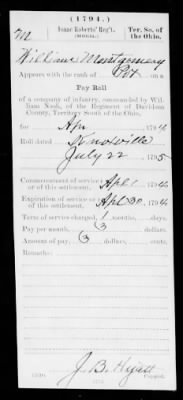 (1794.)
M
Isaac Roberts' Reg't.
(MILITIA.)
Ter. So. of
the Ohio.
William Montgomery
Appears with the rank of Pvt on a
Pay Roll
of a company of infantry, commanded by Wil-
liam Nash, of the Regiment of Davidson
County, Territory South of the Ohio,
for Apr, 1794
Roll dated Knoxville
July 22, 1795
Commencement of service or of this settlement, Apl 1, 1794
Expiration of service or of this settlement, Apl 30, 1794
Term of service charged, 1 months, days.
Pay per month, 3 dollars.
Amount of pay, 3 dollars, cents.
Remarks:
J. B. Hyatt
Copyist.